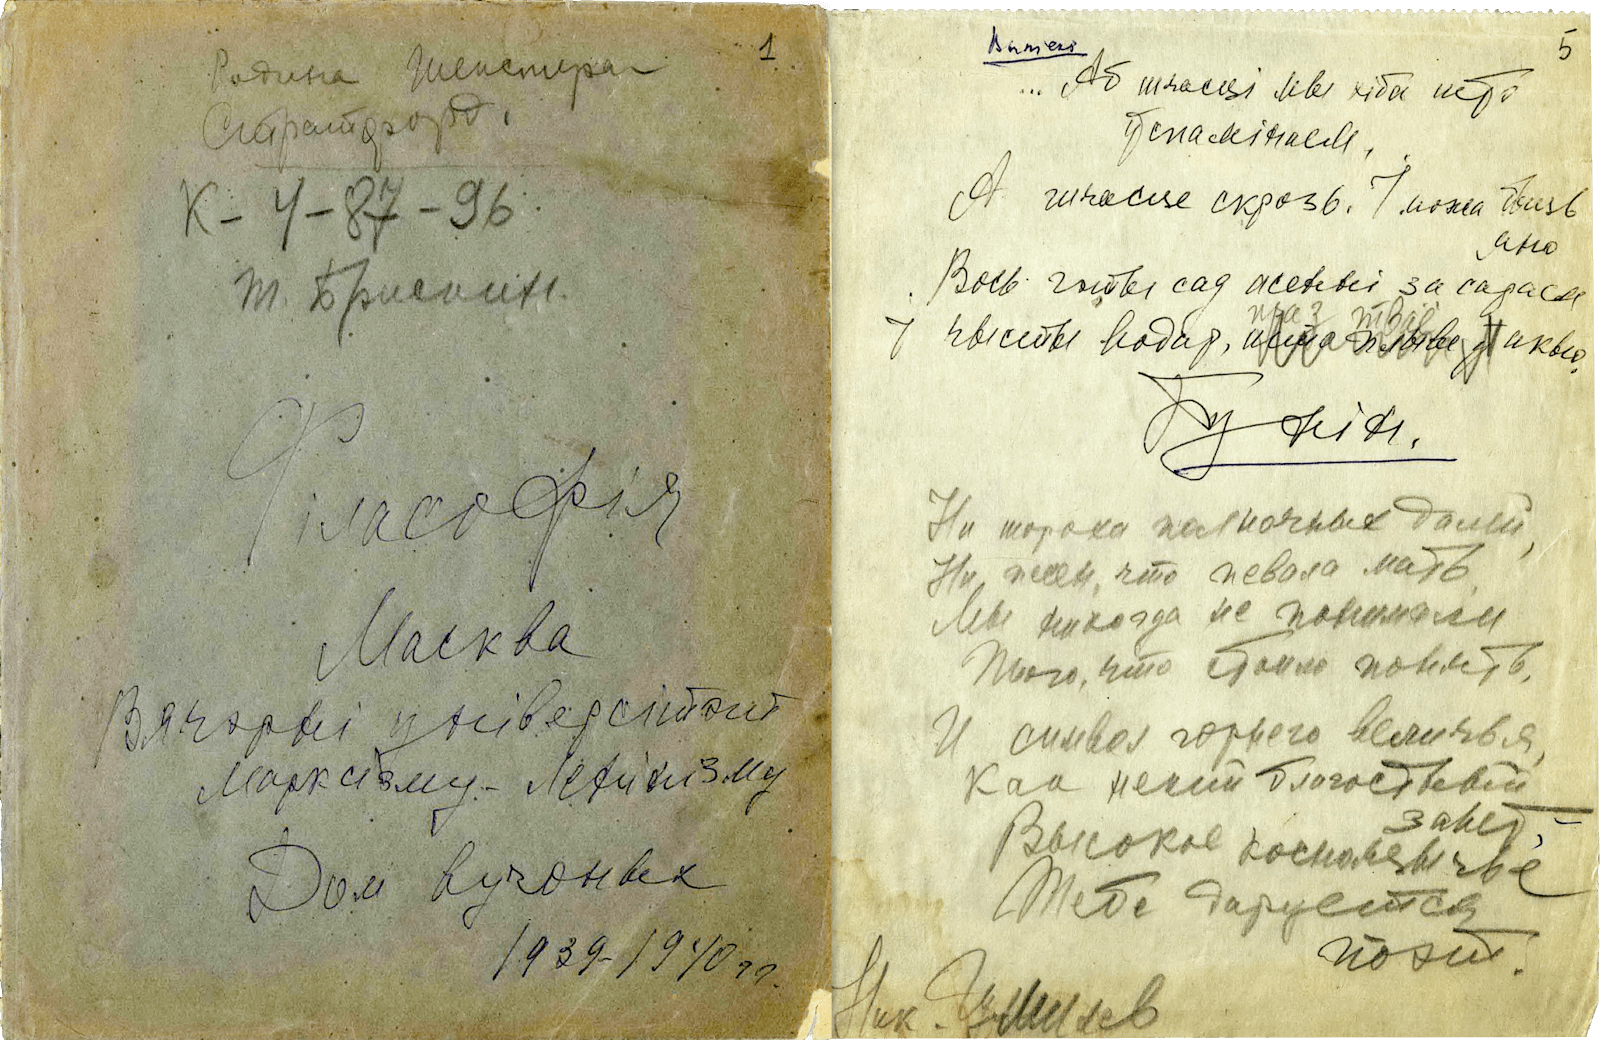 1
Радина Шекспира —
Стратфорд.
К-4-87-96.
т. Брискин.
Філасофія
Масква
Вячэрні універсітэт
Марксізму-Ленінізму
Дом вучоных
1939-1940 гг.
5
... Аб шчасці мы хіба што
ўспамінаем,
А шчасце скрозь. І можа быць
яно
Вось гэты сад асенні за сараем
І чысты водар, што плыве ў акно.
праз тваё
Бунін.
Ни шороха полночных далей,
Ни песен, что певала мать,
Мы никогда не понимали
Того, что стоило понять.
И символ горнего величья,
Как некий благостный
завет, —
Высокое косноязычье
Тебе даруется
поэт.
Ник. Гумилев